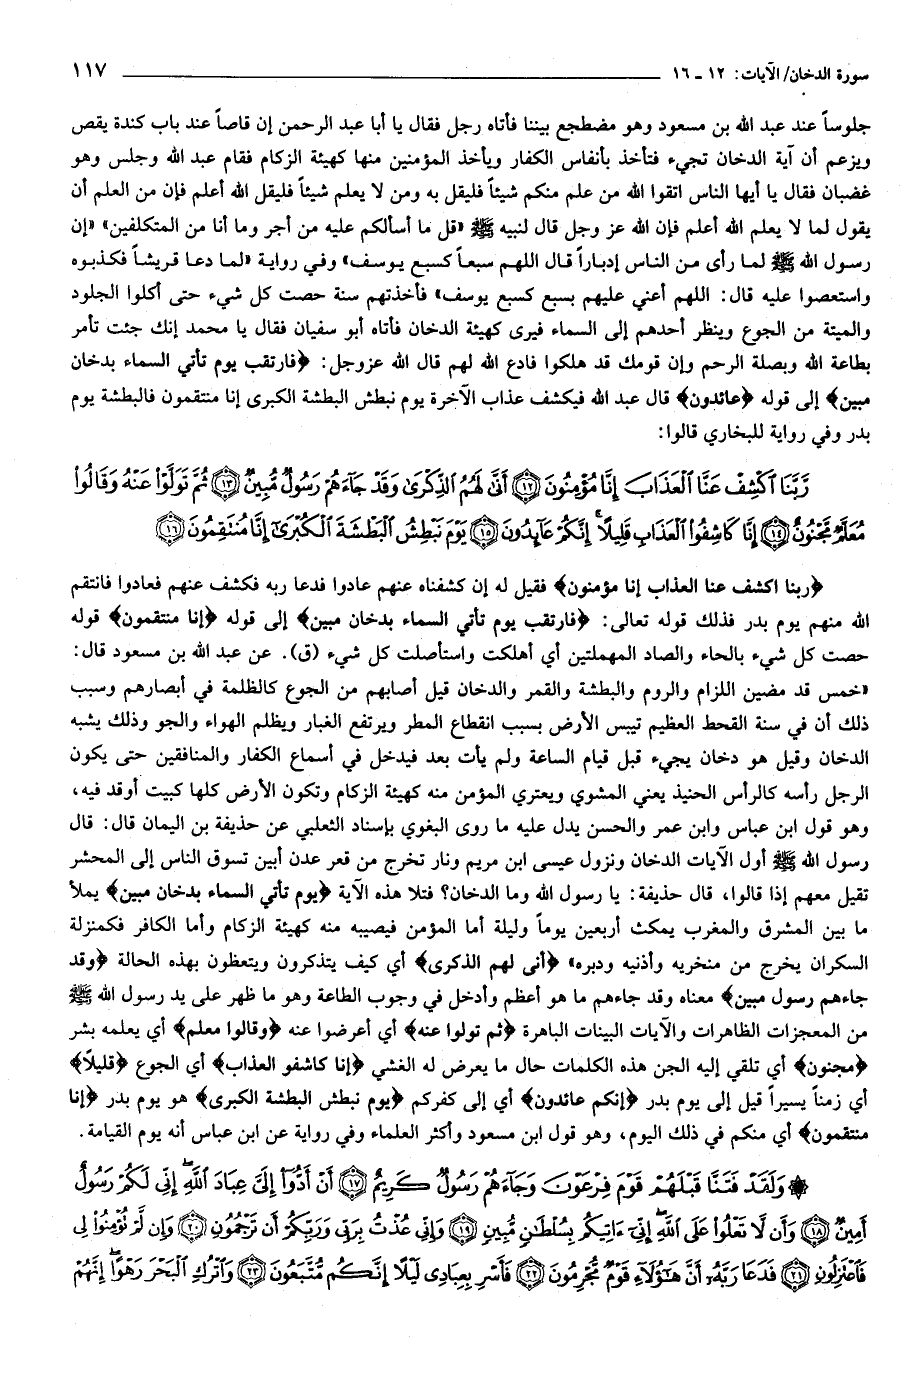 سورة الدخان/ الآيات: ١٢ ـ ١٦ ١١٧
جلوساً عند عبد الله بن مسعود وهو مضطجع بيننا فأتاه رجل فقال يا أبا عبد الرحمن إن قاصاً عند باب كندة يقص
ويزعم أن آية الدخان تجيء فتأخذ بأنفاس الكفار ويأخذ المؤمنين منها كهيئة الزكام فقام عبد الله وجلس وهو
غضبان فقال يا أيها الناس اتقوا الله من علم منكم شيئاً فليقل به ومن لا يعلم شيئاً فليقل الله أعلم فإن من العلم أن
يقول لما لا يعلم الله أعلم فإن الله عز وجل قال لنبيه ﷺ «قل ما أسألكم عليه من أجر وما أنا من المتكلفين» «إن
رسول الله ﷺ لما رأى من الناس إدباراً قال اللهم سبعاً كسبع يوسف» وفي رواية «لما دعا قريشاً فكذبوه
واستعصوا عليه قال: اللهم أعني عليهم بسبع كسبع يوسف» فأخذتهم سنة حصت كل شيء حتى أكلوا الجلود
والميتة من الجوع وينظر أحدهم إلى السماء فيرى كهيئة الدخان فأتاه أبو سفيان فقال يا محمد إنك جئت تأمر
بطاعة الله وبصلة الرحم وإن قومك قد هلكوا فادع الله لهم قال الله عزوجل: ﴿فارتقب يوم تأتي السماء بدخان
مبين﴾ إلى قوله ﴿عائدون﴾ قال عبد الله فيكشف عذاب الآخرة يوم نبطش البطشة الكبرى إنا منتقمون فالبطشة يوم
بدر وفي رواية للبخاري قالوا:
رَّبَّنَا ٱكْشِفْ عَنَّا ٱلْعَذَابَ إِنَّا مُؤْمِنُونَ ﴿١٢﴾ أَنَّىٰ لَهُمُ ٱلذِّكْرَىٰ وَقَدْ جَآءَهُمْ رَسُولٌ مُّبِينٌ ﴿١٣﴾ ثُمَّ تَوَلَّوْا۟ عَنْهُ وَقَالُوا۟
مُعَلَّمٌ مَّجْنُونٌ ﴿١٤﴾ إِنَّا كَاشِفُوا۟ ٱلْعَذَابِ قَلِيلًا ۚ إِنَّكُمْ عَآئِدُونَ ﴿١٥﴾ يَوْمَ نَبْطِشُ ٱلْبَطْشَةَ ٱلْكُبْرَىٰٓ إِنَّا مُنتَقِمُونَ ﴿١٦﴾
﴿ربنا اكشف عنا العذاب إنا مؤمنون﴾ فقيل له إن كشفناه عنهم عادوا فدعا ربه فكشف عنهم فعادوا فانتقم
الله منهم يوم بدر فذلك قوله تعالى: ﴿فارتقب يوم تأتي السماء بدخان مبين﴾ إلى قوله ﴿إنا منتقمون﴾ قوله
حصت كل شيء بالحاء والصاد المهملتين أي أهلكت واستأصلت كل شيء (ق). عن عبد الله بن مسعود قال:
«خمس قد مضين اللزام والروم والبطشة والقمر والدخان قيل أصابهم من الجوع كالظلمة في أبصارهم وسبب
ذلك أن في سنة القحط العظيم تيبس الأرض بسبب انقطاع المطر ويرتفع الغبار ويظلم الهواء والجو وذلك يشبه
الدخان وقيل هو دخان يجيء قبل قيام الساعة ولم يأت بعد فيدخل في أسماع الكفار والمنافقين حتى يكون
الرجل رأسه كالرأس الحنيذ يعني المشوي ويعتري المؤمن منه كهيئة الزكام وتكون الأرض كلها كبيت أوقد فيه،
وهو قول ابن عباس وابن عمر والحسن يدل عليه ما روى البغوي بإسناد الثعلبي عن حذيفة بن اليمان قال: قال
رسول الله ﷺ أول الآيات الدخان ونزول عيسى ابن مريم ونار تخرج من قعر عدن أبين تسوق الناس إلى المحشر
تقيل معهم إذا قالوا، قال حذيفة: يا رسول الله وما الدخان؟ فتلا هذه الآية ﴿يوم تأتي السماء بدخان مبين﴾ يملأ
ما بين المشرق والمغرب يمكث أربعين يوماً وليلة أما المؤمن فيصيبه منه كهيئة الزكام وأما الكافر فكمنزلة
السكران يخرج من منخريه وأذنيه ودبره» ﴿أنى لهم الذكرى﴾ أي كيف يتذكرون ويتعظون بهذه الحالة ﴿وقد
جاءهم رسول مبين﴾ معناه وقد جاءهم ما هو أعظم وأدخل في وجوب الطاعة وهو ما ظهر على يد رسول الله ﷺ
من المعجزات الظاهرات والآيات البينات الباهرة ﴿ثم تولوا عنه﴾ أي أعرضوا عنه ﴿وقالوا معلم﴾ أي يعلمه بشر
﴿مجنون﴾ أي تلقي إليه الجن هذه الكلمات حال ما يعرض له الغشي ﴿إنا كاشفو العذاب﴾ أي الجوع ﴿قليلاً﴾
أي زمناً يسيراً قيل إلى يوم بدر ﴿إنكم عائدون﴾ أي إلى كفركم ﴿يوم نبطش البطشة الكبرى﴾ هو يوم بدر ﴿إنا
منتقمون﴾ أي منكم في ذلك اليوم، وهو قول ابن مسعود وأكثر العلماء وفي رواية عن ابن عباس أنه يوم القيامة.
۞ وَلَقَدْ فَتَنَّا قَبْلَهُمْ قَوْمَ فِرْعَوْنَ وَجَآءَهُمْ رَسُولٌ كَرِيمٌ ﴿١٧﴾ أَنْ أَدُّوٓا۟ إِلَىَّ عِبَادَ ٱللَّهِ ۖ إِنِّى لَكُمْ رَسُولٌ
أَمِينٌ ﴿١٨﴾ وَأَن لَّا تَعْلُوا۟ عَلَى ٱللَّهِ ۖ إِنِّىٓ ءَاتِيكُم بِسُلْطَٰنٍ مُّبِينٍ ﴿١٩﴾ وَإِنِّى عُذْتُ بِرَبِّى وَرَبِّكُمْ أَن تَرْجُمُونِ ﴿٢٠﴾ وَإِن لَّمْ تُؤْمِنُوا۟ لِى
فَٱعْتَزِلُونِ ﴿٢١﴾ فَدَعَا رَبَّهُۥٓ أَنَّ هَٰٓؤُلَآءِ قَوْمٌ مُّجْرِمُونَ ﴿٢٢﴾ فَأَسْرِ بِعِبَادِى لَيْلًا إِنَّكُم مُّتَّبَعُونَ ﴿٢٣﴾ وَٱتْرُكِ ٱلْبَحْرَ رَهْوًا ۖ إِنَّهُمْ